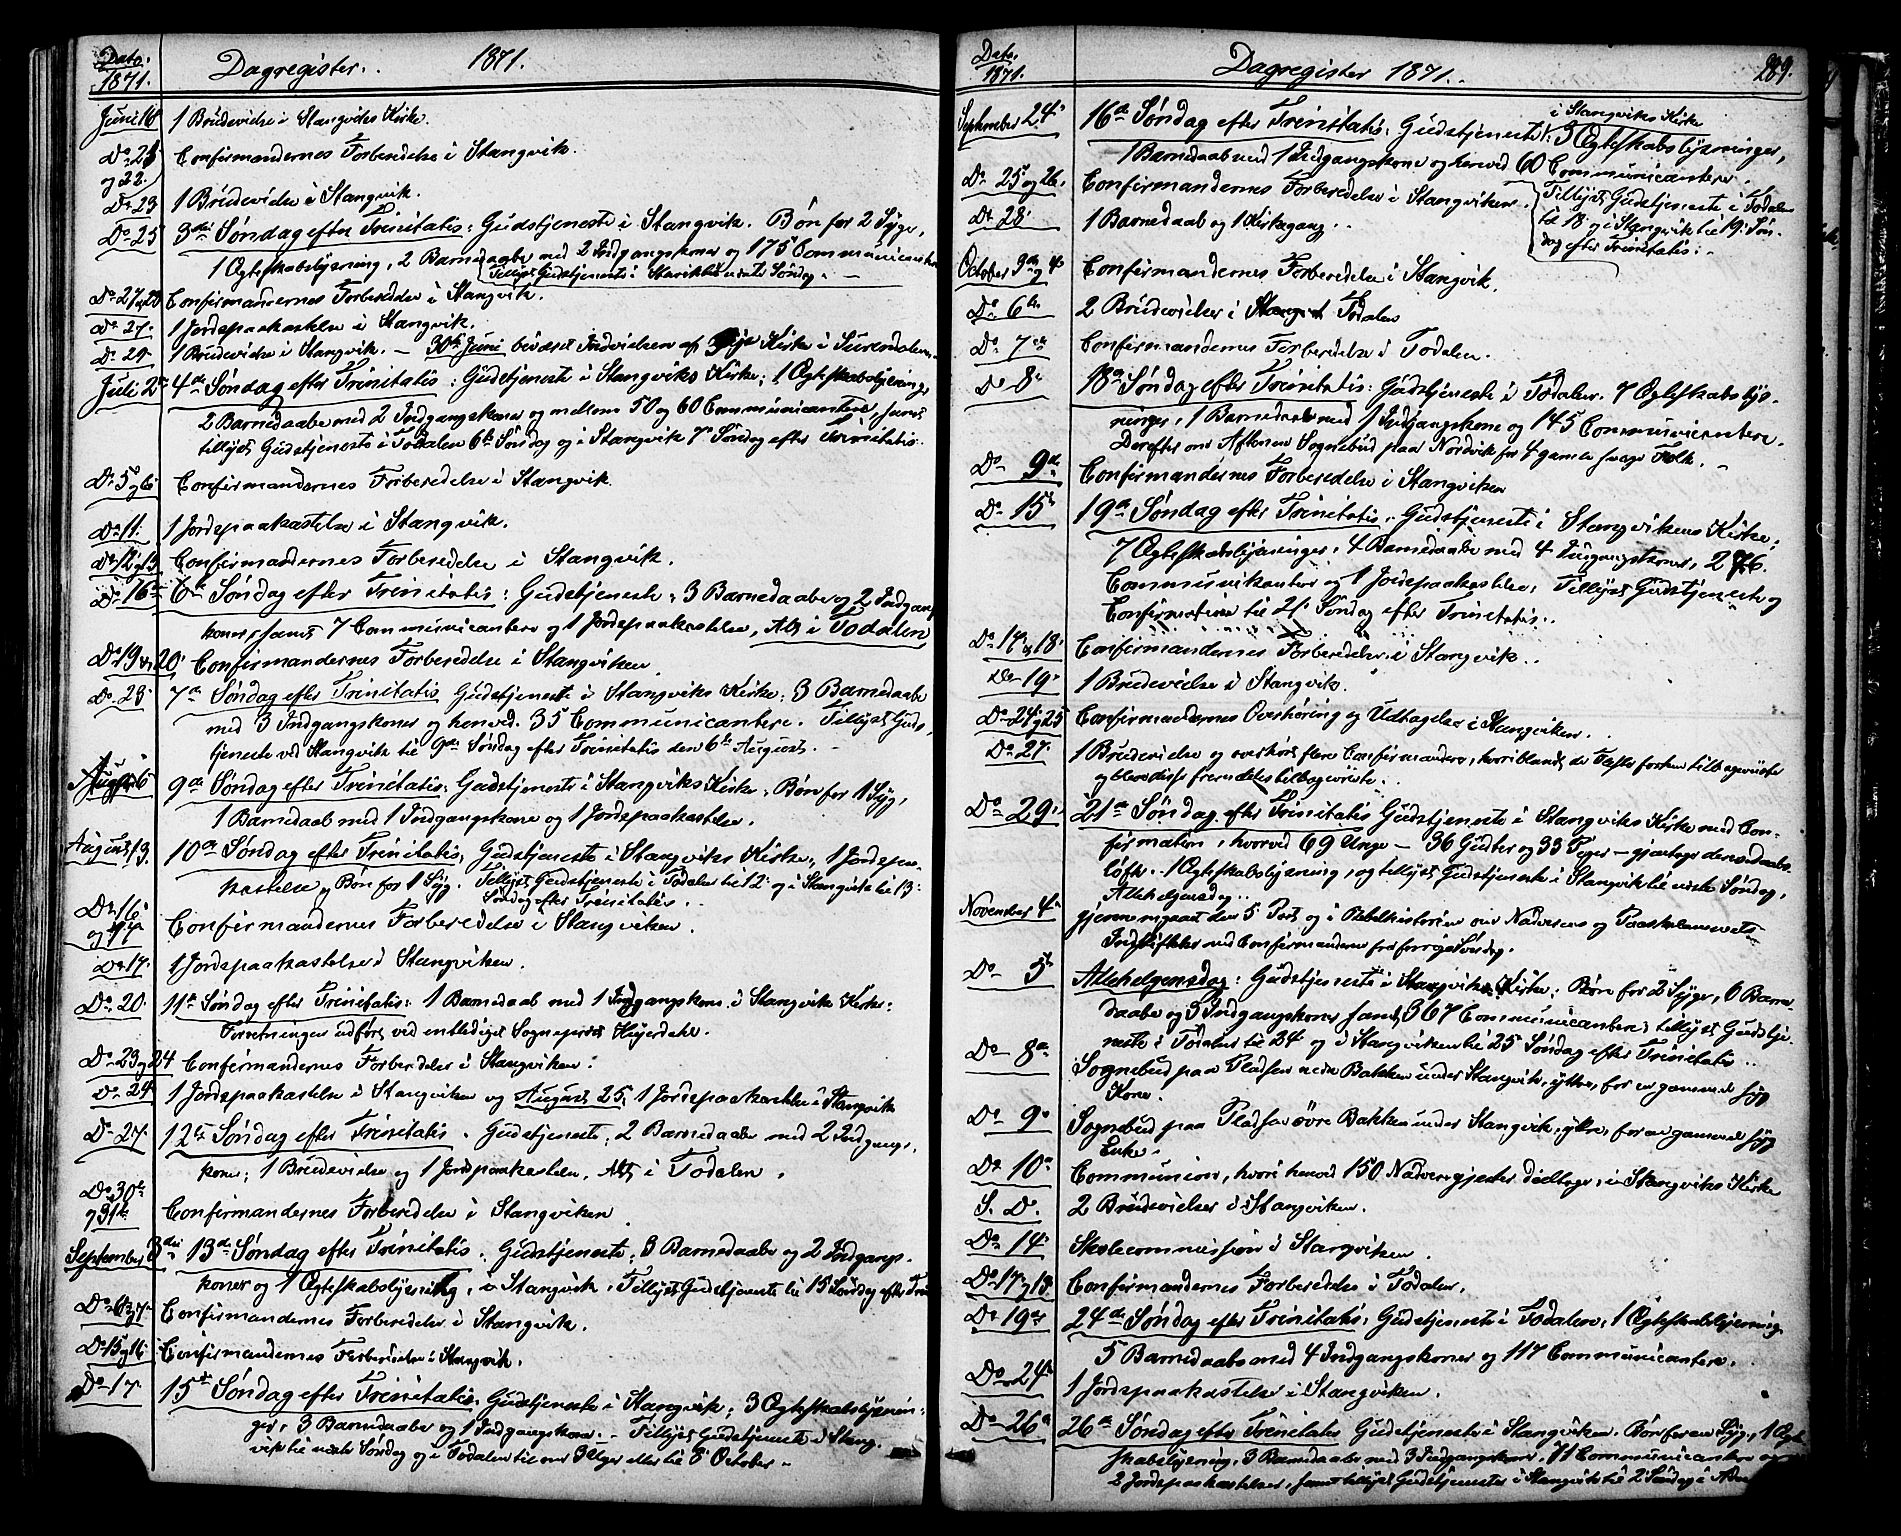 Dato. 1871. Dagregister. 1871.
Juni 16 1 Brudevielse i Stangviks Kirke.
Do 21 og 22. Confirmandernes Forberedelse i Stangvik.
Do 23 1 Brudevielse i Stangvik.
Do 25 3die Søndag efter Trinitatis: Gudstjeneste i Stangvik. Bøn for 2 Syge,
1 Ægteskabslysning, 2 Barnedaabe med 2 Indgangskoner og 175 Communicanter
Tillyst Gudstjeneste i Søndag.
Do 27 28 Confirmandernes Forberedelse i Stangvik.
Do 27. 1 Jordspaakastelse i Stangvik.
Do 29. 1 Brudevielse i Stangvik. — 30te Juni Indvielsen af Kirke i Surendalen.
Juli 2den 4de Søndag efter Trinitatis: Gudstjeneste i Stangviks Kirke; 1 Ægteskabslysning
2 Barnedaabe med 2 Indgangskoner og mellem 50 og 60 Communicantere, samt
tillyst Gudstjeneste i Todalen 6te Søndag og i Stangvik 7de Søndag efter Trinitatis.
Do 5 og 6 Confirmandernes Forberedelse i Stangvik.
Do 11. 1 Jordspaakastelse i Stangvik.
Do 12 og 13 Confirmandernes Forberedelse i Stangvik.
Do 16 6te Søndag efter Trinitatis: Gudstjeneste; 3 Barnedaabe og 2 Indgangs
koner, samt 7 Communicantere og 1 Jordspaakastelse, Alt i Todalen
Do 19 og 20. Confirmandernes Forberedelse i Stangviken
Do 23. 7de Søndag efter Trinitatis Gudstjeneste i Stangviks Kirke; 3 Barnedaabe
med 3 Indgangskoner og henved 35 Communicantere. Tillyst Guds-
tjeneste ved Stangvik til 9de Søndag efter Trinitatis den 6te August.
August 6 9de Søndag efter Trinitatis; Gudstjeneste i Stangviks Kirke. Bøn for 1 Syg,
1 Barnedaab med 1 Indgangskone og 1 Jordspaakastelse.
August 13. 10de Søndag efter Trinitatis, Gudstjeneste i Stangviks Kirke, 1 Jordspaa-
kastelse og Bøn for 1 Syg. Tillyst Gudstjeneste i Todalen til 12. og i Stangvik til 13.
Søndag efter Trinitatis.
Do 16 og 17 Confirmandernes Forberedelse i Stangviken.
Do 17. 1 Jordspaakastelse i Stangviken.
Do 20. 11te Søndag efter Trinitatis: 1 Barnedaab med 1 Indgangskone i Stangvik Kirke:
Forretningen udført ved entlediget Sogneprest Heyerdahl.
Do 23 og 24 Confirmandernes Forberedelse i Stangviken.
Do 24 1 Jordspaakastelse i Stangviken og August 25, 1 Jordspaakastelse i Stangvik
Do 27. 12te Søndag efter Trinitatis. Gudstjeneste; 2 Barnedaabe med 2 Indgangs-
koner; 1 Brudevielse og 1 Jordspaakastelse, Alt i Todalen.
Do 30te og 31te Confirmandernes Forberedelse i Stangviken
September 3die 13de Søndag efter Trinitatis. Gudstjeneste; 3 Barnedaabe og 2 Indgangs-
koner og 1 Ægteskabslysning, i Stangvik. Tillyst Gudstjeneste til 15 Søndag efter Trin
Do 6 og 7. Confirmandernes Forberedelse i Stangvik.
Do 15 og 16. Confirmandernes Forberedelse i Stangvik.
Do 17. 15de Søndag efter Trinitatis. Gudstjeneste i Stangvik; 3 Ægteskabslysnin-
ger, 3 Barnedaabe og 1 Indgangskone. — Tillyst Gudstjeneste i Stang-
vik til næste Søndag og i Todalen til om 3 Uger eller til 8. October.
Dato. 1871. Dagregister 1871. 289.
September 24. 16de Søndag efter Trinitatis: Gudstjeneste i Stangviks Kirke: 3 Ægteskabslysninger,
1 Barnedaab med 1 Indgangskone og henved 60 Communicantere.
Tillyst Gudstjeneste i Todalen
til 18 og i Stangvik til 19. Søn-
dag efter Trinitatis.
Do 25 og 26. Confirmandernes Forberedelse i Stangviken.
Do 28. 1 Barnedaab og 1 Kirkegang.
October 3die og 4 Confirmandernes Forberedelse i Stangvik.
Do 6te 2 Brudevielser i Todalen
Do 7de Confirmandernes Forberedelse i Todalen.
Do 8. 18de Søndag efter Trinitatis: Gudstjeneste i Todalen. 7 Ægteskabslys-
ninger, 1 Barnedaab med 1 Indgangskone og 145 Communicantere.
Derefter om Aftenen Sognebud paa Nordvik for 4 gamle svage Folk.
Do 9de Confirmandernes Forberedelse i Stangviken
Do 15de 19de Søndag efter Trinitatis. Gudstjeneste i Stangvikens Kirke;
7 Ægteskabslysninger; 4 Barnedaabe med 4 Indgangskoner, 276
Communikanter og 1 Jordspaakastelse; Tillyst Gudstjeneste og
Confirmation til 21. Søndag efter Trinitatis.
Do 17 18. Confirmandernes Forberedelse i Stangvik.
Do 19. 1 Brudevielse i Stangvik.
Do 24 og 25 Confirmandernes Overhøring og Udtagelse i Stangviken.
Do 27. 1 Brudevielse og overhørt flere Confirmandere, hvoriblandt de Fleste forhen tilbageviste
og bleve disse fremdeles tilbageviste.
Do 29. 21de Søndag efter Trinitatis Gudstjeneste i Stangviks Kirke med Con-
firmation, hvorved 69 Unge — 36 Gutter og 33 Piger — gjentoge deres daabs
løfte. 1 Ægteskabslysning, og tillyst Gudstjeneste i Stangvik til næste Søndag,
Allehelgensdag.
November 4. gjennemgaaet den 5 Part og i Bibelhistorien om Nadverens og Paaskelammets
Indstiftelse med Confirmanderne fra forrige Søndag.
Do 5te Allehelgensdag: Gudstjeneste i Stangviks Kirke; Bøn for 2 Syge, 6 Barne-
daabe og 3 Indgangskoner samt 367 Communicantere; tillyst Gudstje-
neste i Todalen til 24 og i Stangviken til 25 Søndag efter Trinitatis.
Do 8de Sognebud paa Pladsen nedre Bakken under Stangvik, ytre, for en gammel syg
Kone.
Do 9. Sognebud paa Pladsen øvre Bakken under Stangvik, ytre, for en gammel syg
Enke.
Do 10. Communion, hvori henved 150 Nadvergjester deeltoge, i Stangviks Kirke
S. D. 2 Brudevielser i Stangviken.
Do 14. Skolecommission i Stangviken.
Do 17 og 18. Confirmandernes Forberedelse i Todalen.
Do 19de 24de Søndag efter Trinitatis: Gudstjeneste i Todalen, 1 Ægteskabslysning
5 Barnedaabe med 4 Indgangskoner og 117 Communicantere.
Do 24. 1 Jordspaakastelse i Stangviken.
Do 26de 26de Søndag efter Trinitatis Gudstjeneste i Stangviken. Bøn for en Syg, 1 Ægte
skabslysning, 3 Barnedaabe med 3 Indgangskoner, 71 Communicantere og
2 Jordspaakastelser, samt tillyst Gudstjenester i Stangvik til 2 Søndag i